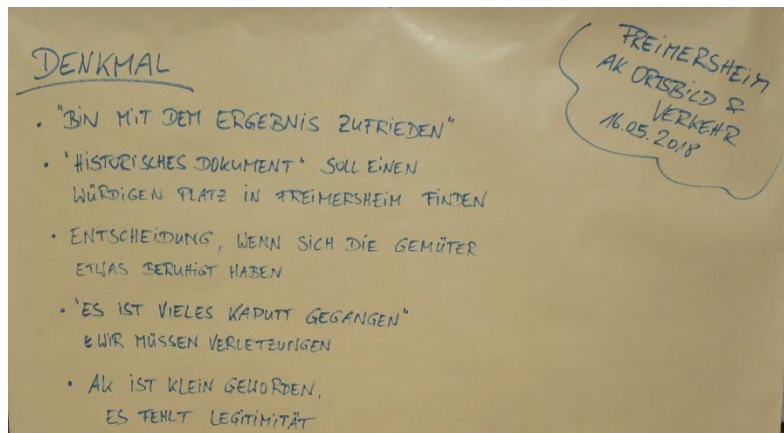 DENKMAL
FREIMERSHEIM
AK ORTSBILD &
VERKEHR
16.05.2018
• "BIN MIT DEM ERGEBNIS ZUFRIEDEN"
• "HISTORISCHES DOKUMENT" SOLL EINEN
WÜRDIGEN PLATZ IN FREIMERSHEIM FINDEN
• ENTSCHEIDUNG, WENN SICH DIE GEMÜTER
ETWAS BERUHIGT HABEN
• "ES IST VIELES KAPUTT GEGANGEN"
& WIR MÜSSEN VERLETZUNGEN
• AK IST KLEIN GEWORDEN,
ES FEHLT LEGITIMITÄT